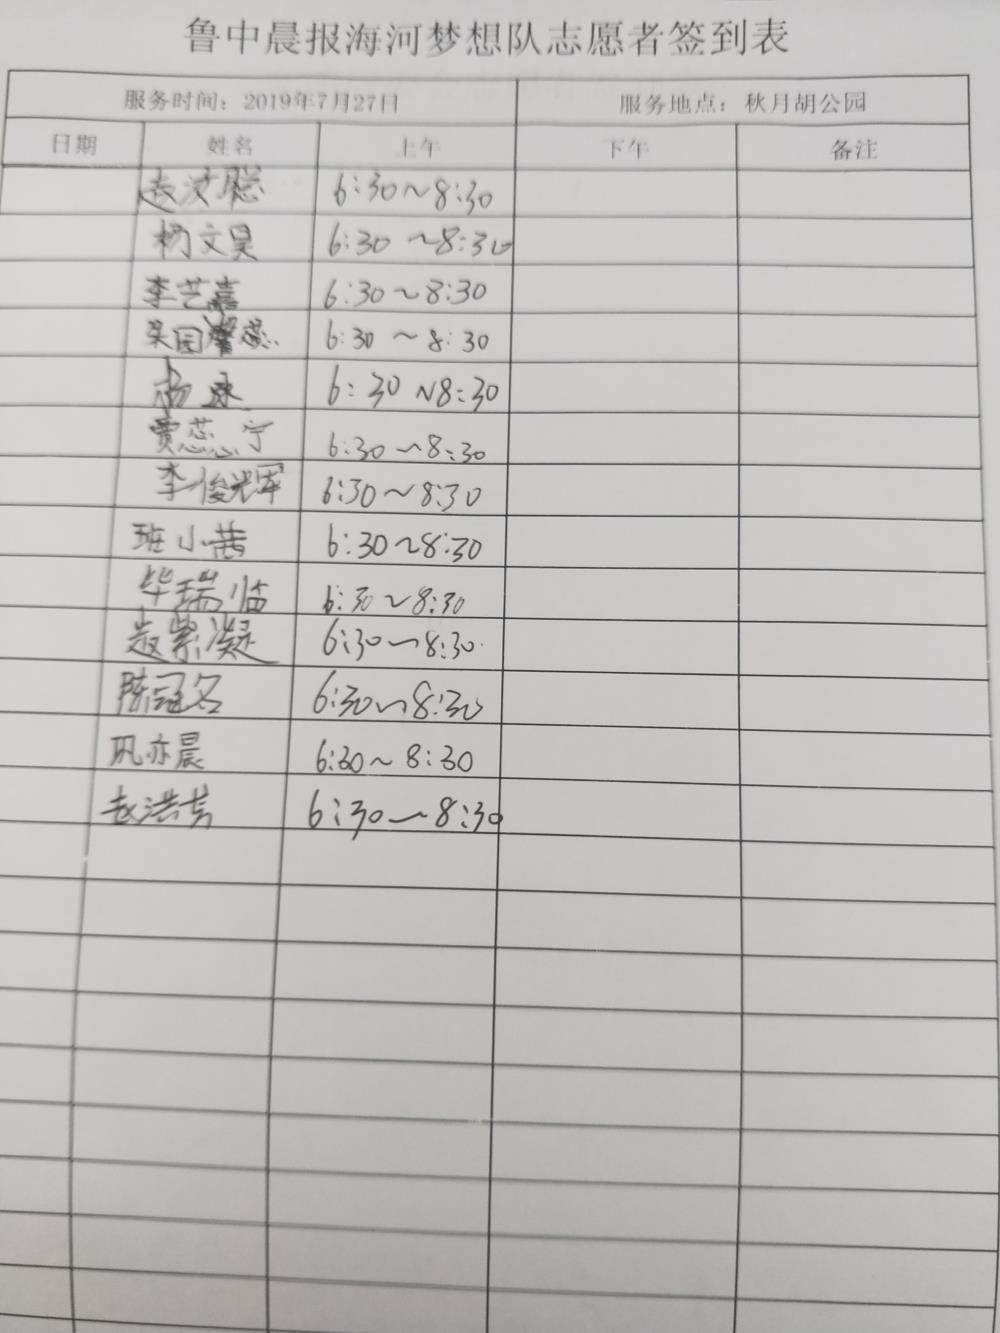 鲁中晨报海河梦想队志愿者签到表
服务时间：2019年7月27日 服务地点：秋月胡公园
日期 姓名 上午 下午 备注
6:30~8:30
杨文昊 6:30~8:30
李艺嘉 6:30~8:30
6:30~8:30
杨 6:30~8:30
贾蕊宁 6:30~8:30
李俊光军 6:30~8:30
班小茜 6:30~8:30
毕瑞临 6:30~8:30
赵紫凝 6:30~8:30
陈冠名 6:30~8:30
巩亦晨 6:30~8:30
赵洪 6:30~8:30